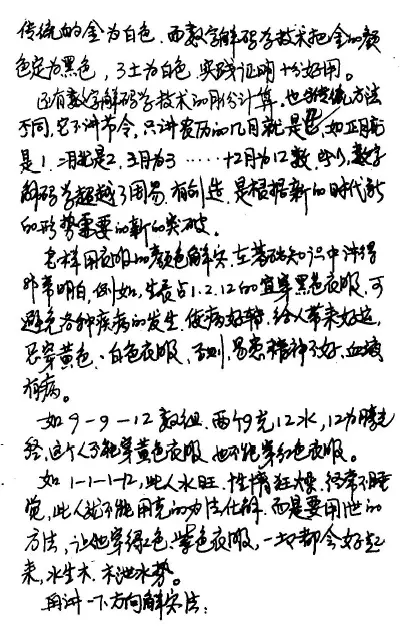 传统的金为白色,而数字解码学技术把金的颜
色定为黑色,了土为白色,实践证明十分好用。
还有数字解码学技术的月份计算,也与传统方法
不同,它不讲节令,只讲农历的几月就是几,如正月
是1,二月就是2,三月为3……十二月为12数,所以,数字
解码学超越了周易,有创造,是根据新的时代新
的形势需要的新的突破。
怎样用衣服的颜色解灾,在基础知识中讲得
非常明白,例如,生辰占1.2.12的宜穿黑色衣服,可
避免各种疾病的发生,使病好转,给人带来好运,
忌穿黄色、白色衣服,否则,易患精神不好,血液
有病。
如9-9-12数组,两个9克12水,12为膀胱
经,这个人不能穿黄色衣服,也不能穿红色衣服。
如1-1-1-12,此人水旺,性情狂燥,经常不睡
觉,此人就不能用克的办法化解,而是要用泄的
方法,让他穿绿色、紫色衣服,一切都会好起
来,水生木,木泄水势。
再讲一下方向解灾法: